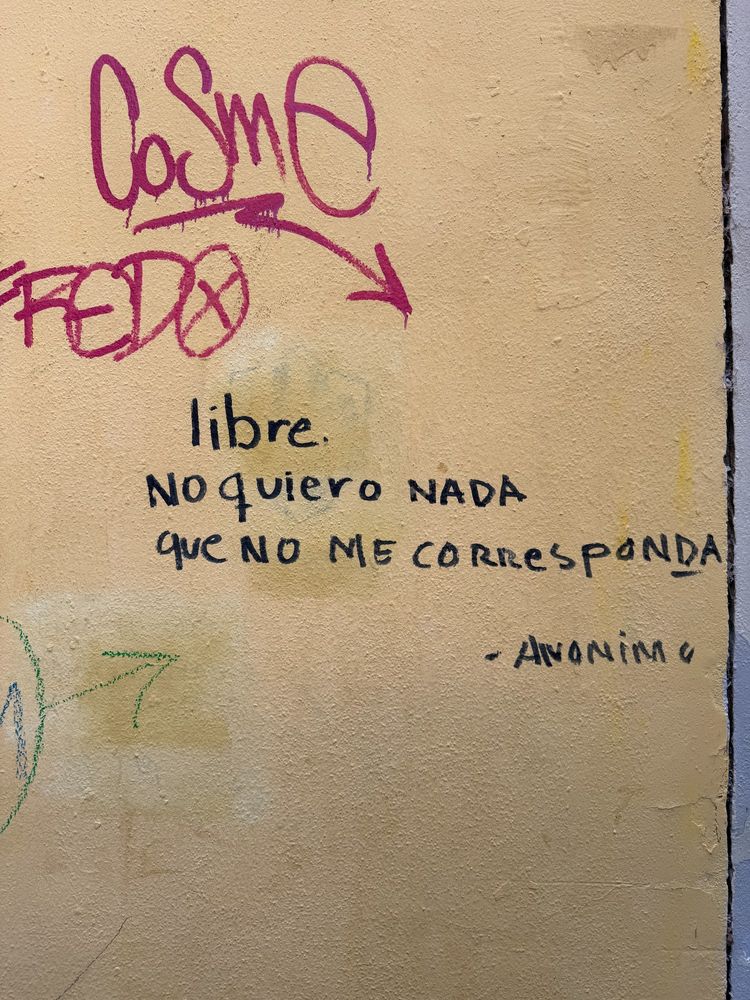 CoSme
FREDO
libre.
NO quiero NADA
que NO ME CORResponDA
- ANONiMo